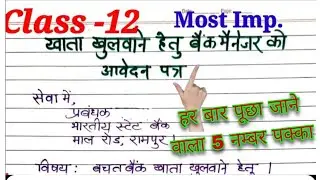 Class -12 Most Imp.
खाता खुलवाने हेतु बैंक मैनेजर को
आवेदन पत्र
सेवा में,
प्रबंधक
भारतीय स्टेट बैंक
माल रोड, रामपुर।
हर बार पूछा जाने
वाला 5 नम्बर पक्का
विषय: बचत बैंक खाता खुलवाने हेतु।